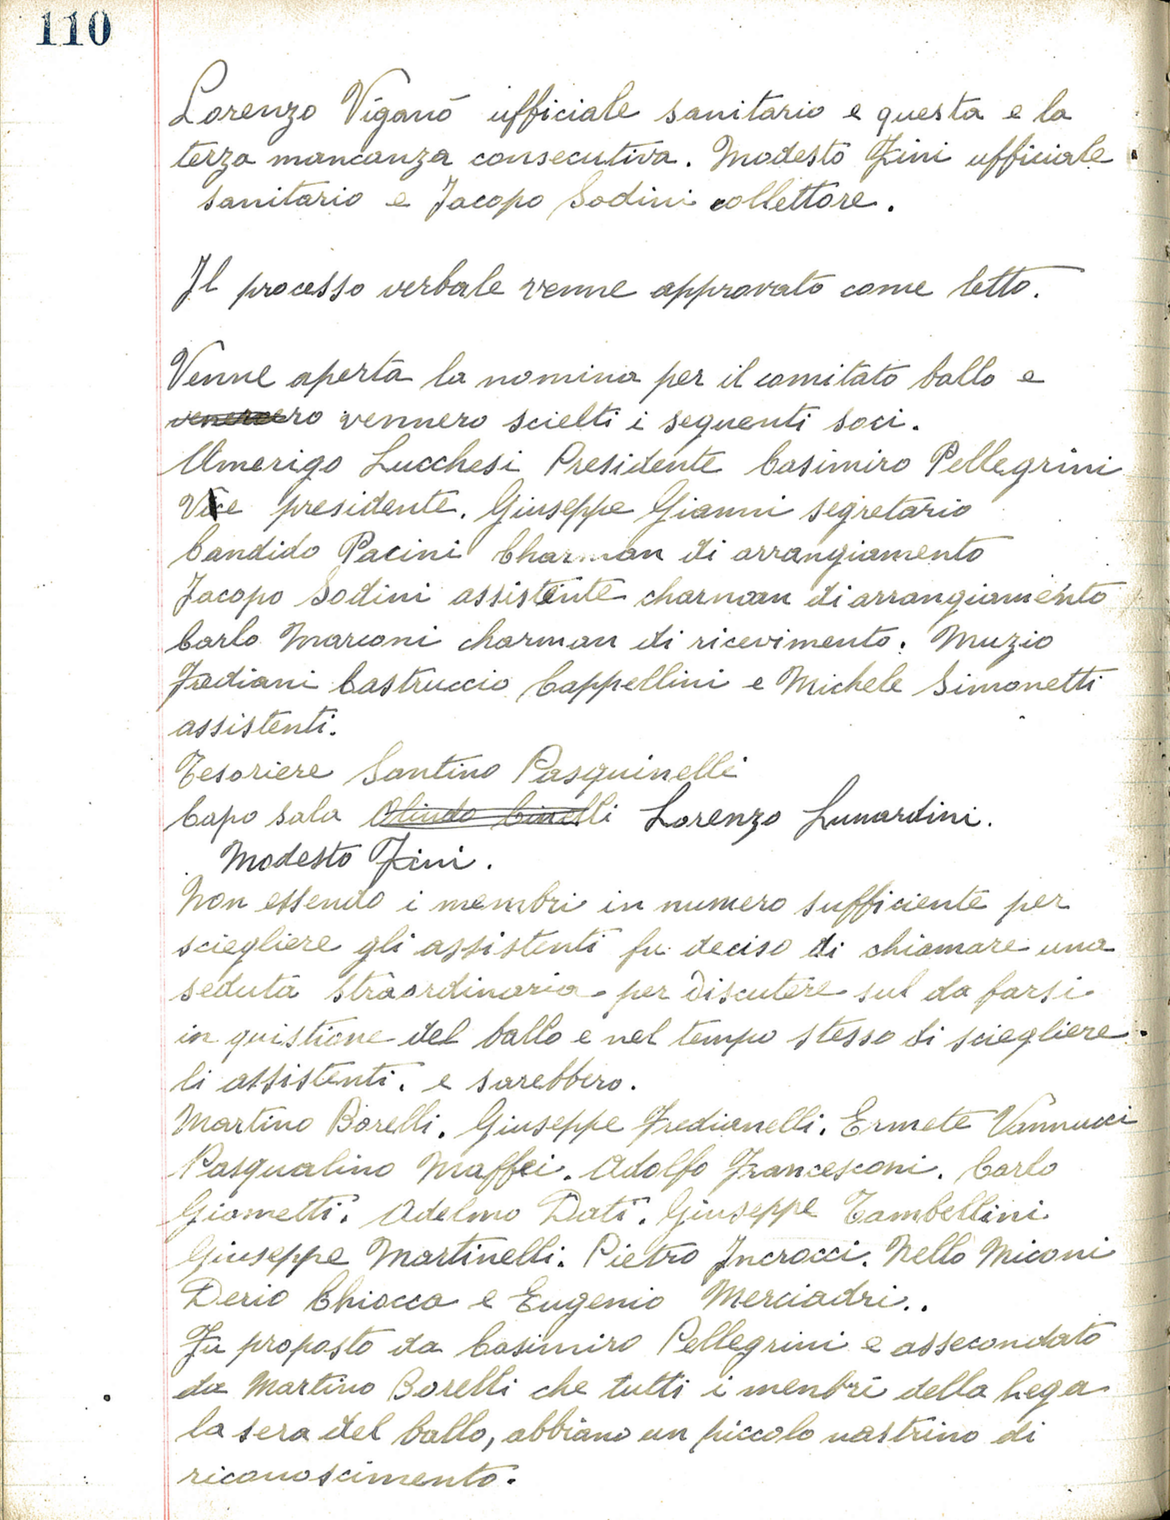 110
Lorenzo Viganó ufficiale sanitario e questa e la
terza mancanza consecutiva. Modesto Fini ufficiale
sanitario e Jacopo Sodini collettore.
Il processo verbale venne approvato come letto.
Venne aperta la nomina per il comitato ballo e
vennero scielti i seguenti soci.
Amerigo Lucchesi Presidente Casimiro Pellegrini
Vice presidente. Giuseppe Gianni segretario
Candido Pacini Charman di arrangiamento
Jacopo Sodini assistente charman di arrangiamento
Carlo Marconi charman di ricevimento. Muzio
Frediani Castruccio Cappellini e Michele Simonetti
assistenti.
Tesoriere Santino Pasquinelli
Capo sala Olindo Cinelli Lorenzo Lunardini.
Modesto Fini.
Non essendo i membri in numero sufficiente per
sciegliere gli assistenti fu deciso di chiamare una
seduta straordinaria per discutere sul da farsi
in quistione del ballo e nel tempo stesso di sciegliere
li assistenti. e sarebbero.
Martino Borelli. Giuseppe Fredianelli. Ermete Vannucci
Pasqualino Maffei. Adolfo Francesconi. Carlo
Giometti. Adelmo Dati. Giuseppe Tambellini
Giuseppe Martinelli. Pietro Incrocci. Nello Miconi
Derio Chiocca e Eugenio Merciadri..
Fu proposto da Casimiro Pellegrini e assecondato
da Martino Borelli che tutti i menbri della Lega
la sera del ballo, abbiano un piccolo nastrino di
riconoscimento.